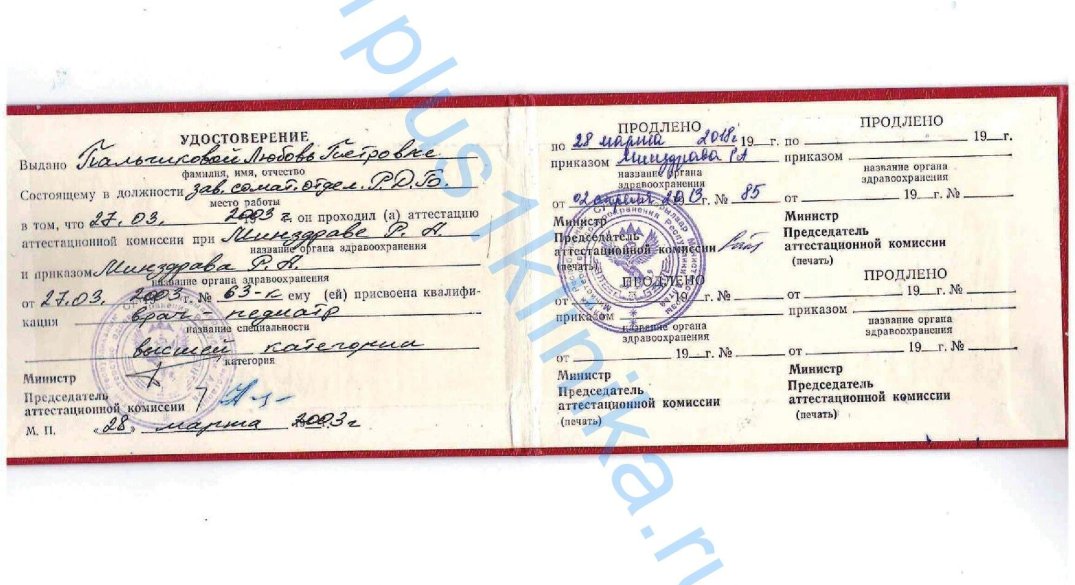 УДОСТОВЕРЕНИЕ
Выдано Пальчиковой Любовь Петровне
фамилия, имя, отчество
Состоящему в должности зав. сомат. отдел. Р.Д.Б.
место работы
в том, что 27. 03. 2003 г. он проходил (а) аттестацию
аттестационной комиссии при Минздраве Р. А.
название органа здравоохранения
и приказом Минздрава Р. А.
название органа здравоохранения
от 27.03. 2003 г. № 63-к ему (ей) присвоена квалифи-
кация врач - педиатр
название специальности
высшей категории
категория
Министр
Председатель
аттестационной комиссии
М. П. «28» марта 2003 г
ПРОДЛЕНО
по 28 марта 2018 г 19 г.
приказом Минздрава РА
название органа
здравоохранения
от 02 апреля 2013 г. № 85
Министр
Председатель
аттестационной комиссии
(печать)
ПРОДЛЕНО
от 19 г.
приказом
название органа
здравоохранения
от 19 г. №
Министр
Председатель
аттестационной комиссии
(печать)
ПРОДЛЕНО
по 19 г.
приказом
название органа
здравоохранения
от 19 г. №
Министр
Председатель
аттестационной комиссии
(печать)
ПРОДЛЕНО
от 19 г.
приказом
название органа
здравоохранения
от 19 г. №
Министр
Председатель
аттестационной комиссии
(печать)
plus1klinika.ru